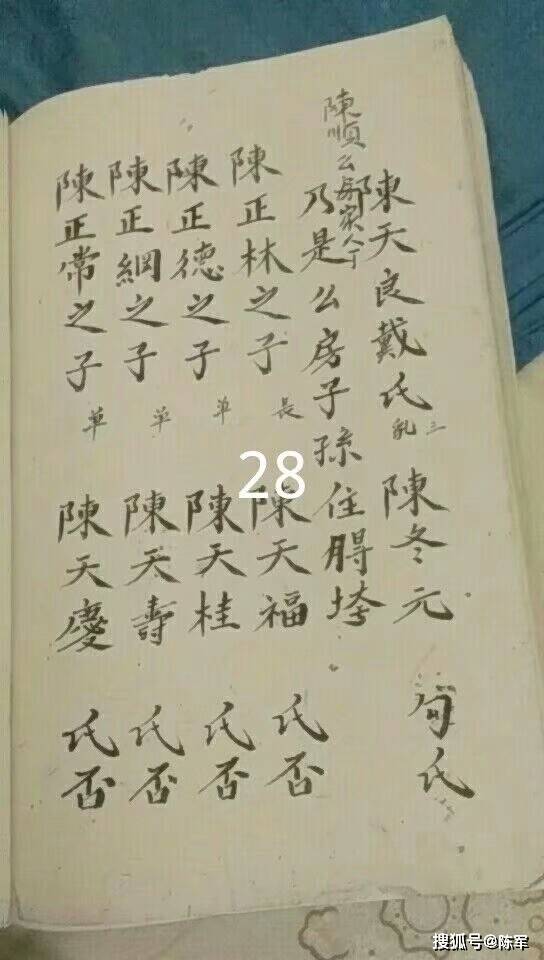 陳天良戴氏 三乳 陳冬元 句氏
陳順公房家人丁
乃是公房子孫住脟垮
陳正林之子 長 陳天福 氏否
陳正德之子 单 陳天桂 氏否
陳正綱之子 单 陳天壽 氏否
陳正常之子 单 陳天慶 氏否
28
搜狐号@陈军